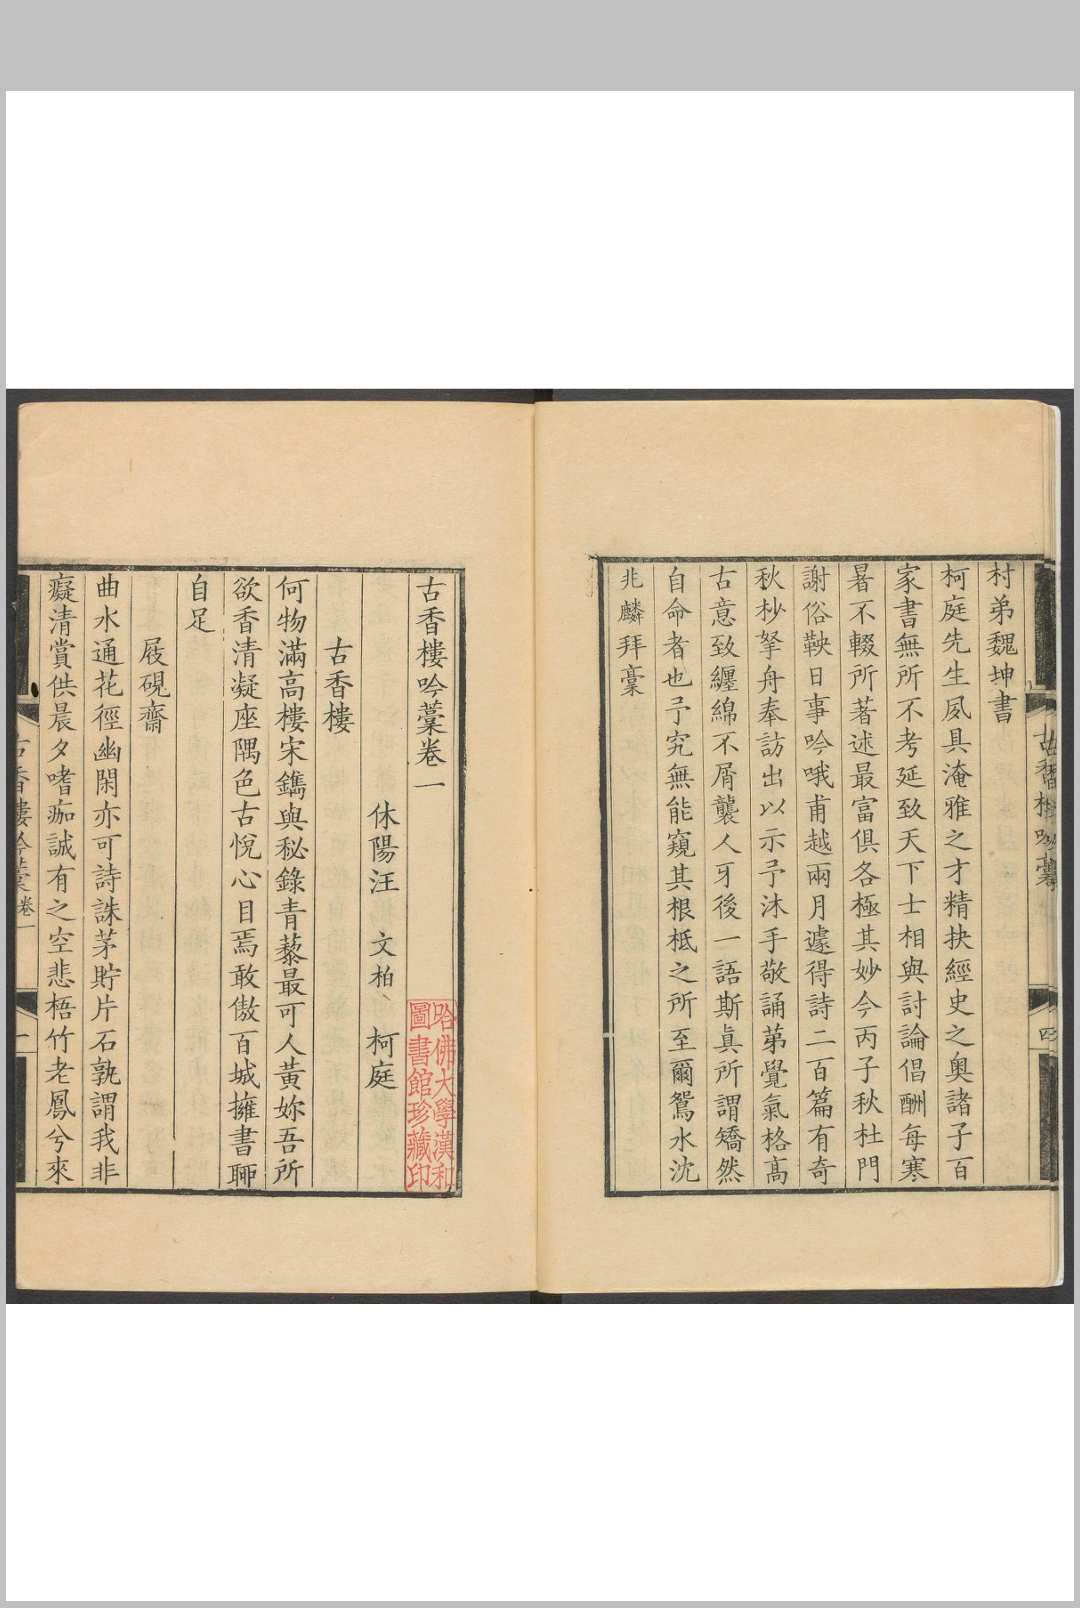 村弟魏坤書
柯庭先生夙具淹雅之才精抉經史之奧諸子百
家書無所不考延致天下士相與討論倡酬每寒
暑不輟所著述最富俱各極其妙今丙子秋杜門
謝俗鞅日事吟哦甫越兩月遽得詩二百篇有奇
秋杪拏舟奉訪出以示予沐手敬誦第覺氣格高
古意致纏綿不屑襲人牙後一語斯眞所謂矯然
自命者也予究無能窺其根柢之所至爾鴛水沈
兆麟拜稾
古香樓吟稾
四
古香樓吟藳卷一
休陽汪 文柏 柯庭
古香樓
何物滿高樓宋鐫與秘錄青藜最可人黃妳吾所
欲香清凝座隅色古悅心目焉敢傲百城擁書聊
自足
屐硯齋
曲水通花徑幽閑亦可詩誅茅貯片石孰謂我非
癡清賞供晨夕嗜痂誠有之空悲梧竹老鳳兮來
古香樓吟藳卷一
一
哈佛大學漢和
圖書館珍藏印